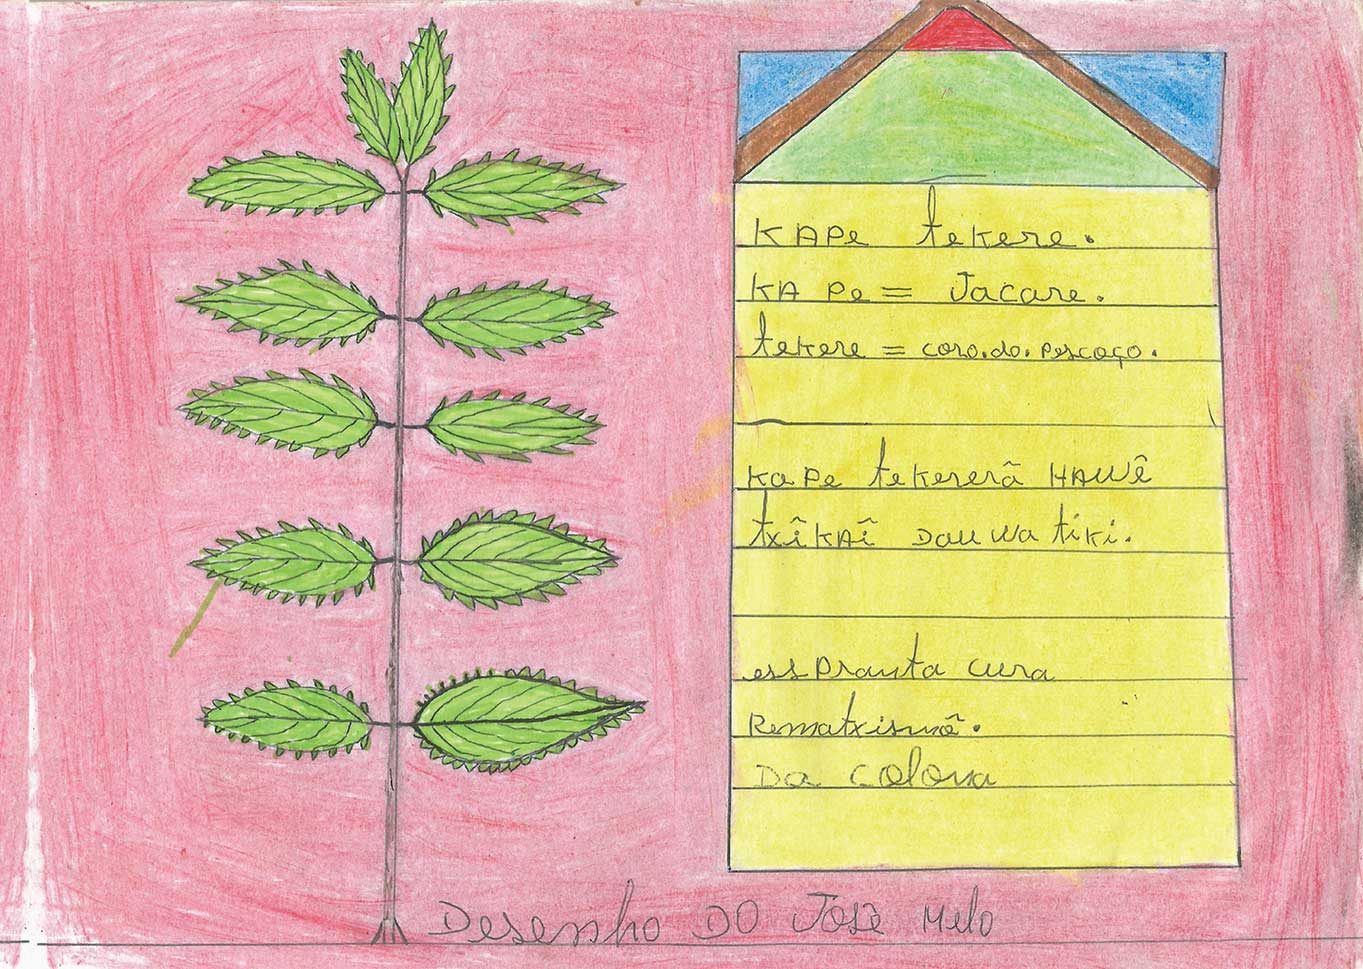 KAPe tekere.
KAPe = Jacare.
tekere = coro.do.pescoço.
KaPe tekererã HAWÊ
txîKAÎ DAuwa tiki.
ess pranta cura
Rematxismô.
Da colona
Desenho DO JOSÉ Melo